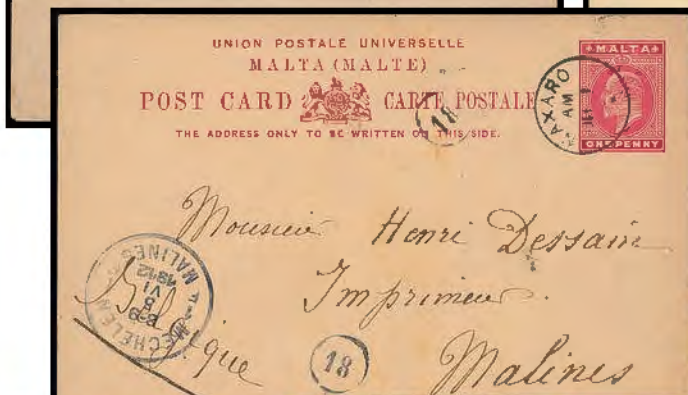 UNION POSTALE UNIVERSELLE
MALTA (MALTE)
POST CARD CARTE POSTALE
THE ADDRESS ONLY TO BE WRITTEN ON THIS SIDE.
MALTA
ONE PENNY
AXARO
AM
18
Monsieur Henri Dessain
Imprimeur.
Malines
Belgique
MECHELEN
8-9
5
VI
1912
MALINES
18